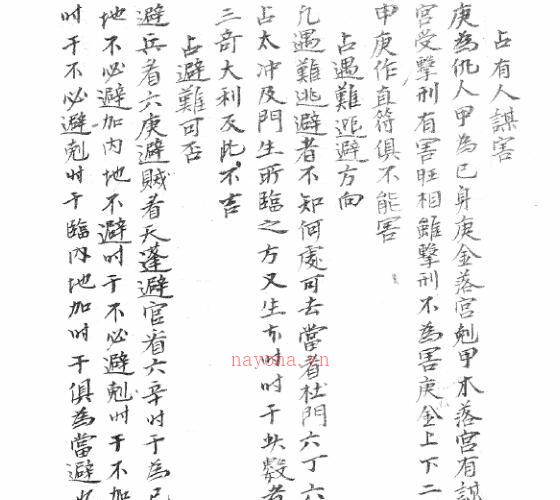 占有人謀害
庚為仇人甲為己身庚金落宮剋甲木落宮有謀
宮受擊刑有害旺相雖擊刑不為害庚金上下二
申庚作直符俱不能害
占遇難逃避方向
凡遇難逃避者不知何處可去當看杜門六丁六
占太冲及門生所臨之方又生本时时干此数者
三奇大利反此不吉
占避難可否
避兵者六庚避賊者天蓬避官者六辛时干為己
地不必避加内地不避时干不必避剋时干不加
时干不必避剋时干臨内地加时干俱為當避
nayona.cn